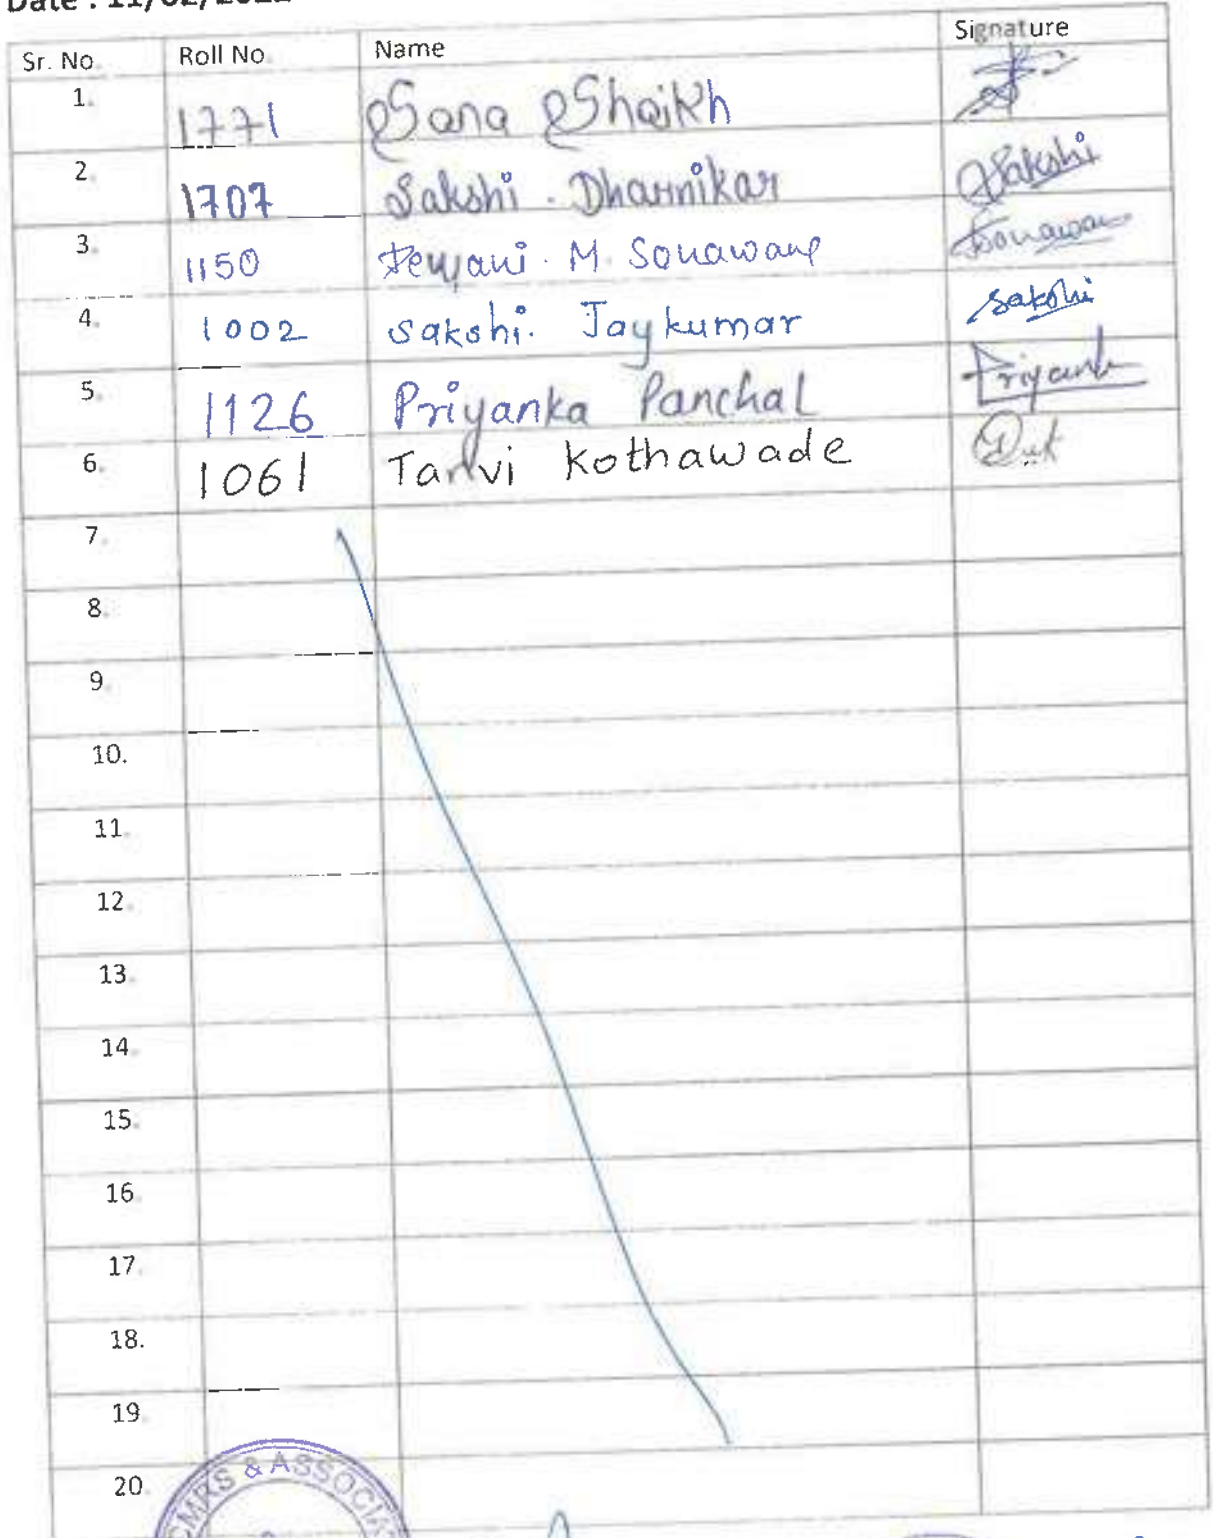 Date : 11/02/2022
Sr. No. Roll No. Name Signature
1. 1771 Sana Shaikh
2. 1707 Sakshi . Dharnikar Sakshi
3. 1150 Dewyani . M. Sonawane Sonawane
4. 1002 Sakshi . Jaykumar Sakshi
5. 1126 Priyanka Panchal Priyanka
6. 1061 Tanvi Kothawade
7.
8.
9.
10.
11.
12.
13.
14.
15.
16.
17.
18.
19.
20.
CMRS & ASSOCIA